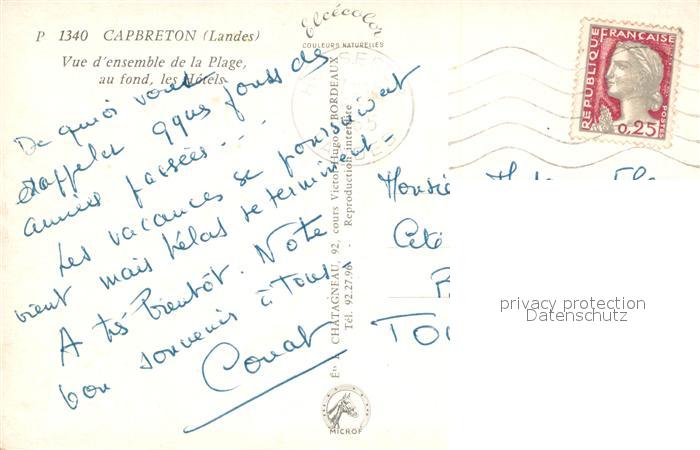 P 1340 CAPBRETON (Landes)
Vue d'ensemble de la Plage,
au fond, les Hôtels
De quoi vous
rappeler qques jours des
années passées...
Les vacances se poursuivent
mais hélas se terminent -
A très bientôt. Notre
bon souvenir à Tous.
Couat
Elcécolor
COULEURS NATURELLES
CHATAGNEAU, 92, cours Victor-Hugo - BORDEAUX
Tél. 92.27.96 - Reproduction interdite
MICROF
REPUBLIQUE FRANÇAISE
POSTES
0,25
Monsie
Cité
TOU
privacy protection
Datenschutz